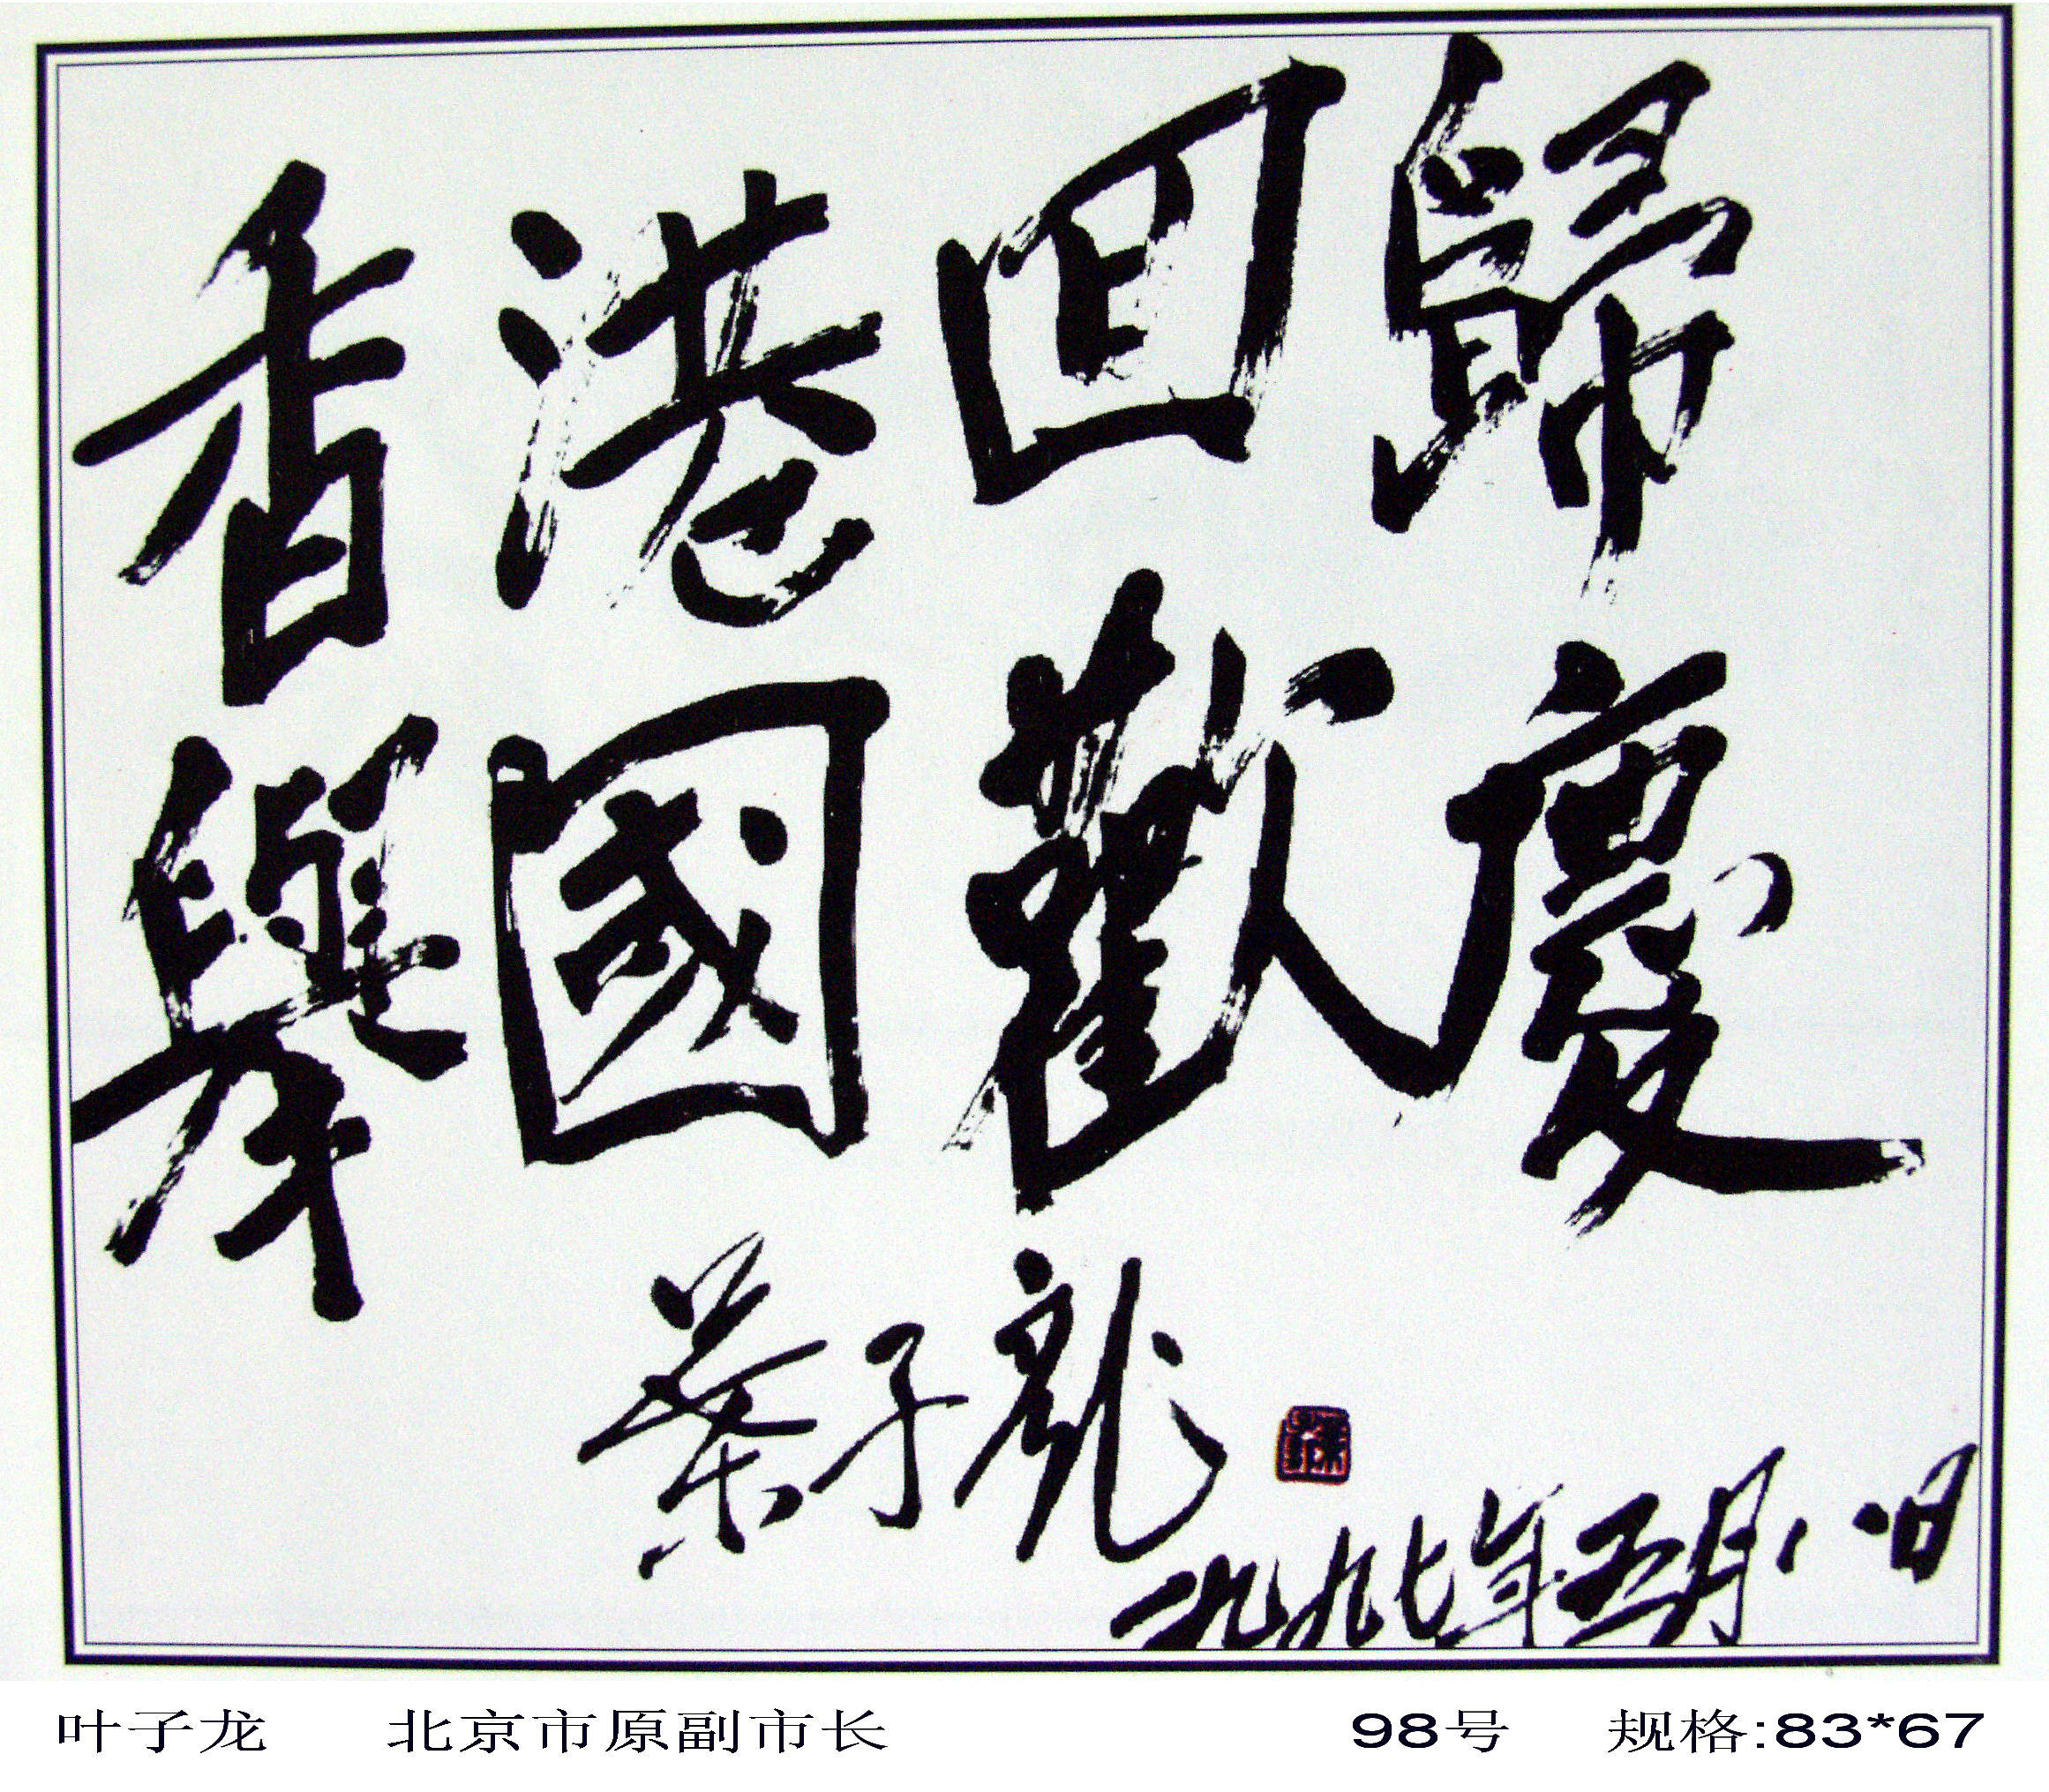 香港回歸
舉國歡慶
葉子龍
一九九七年五月八日
叶子龙 北京市原副市长 98号 规格:83*67